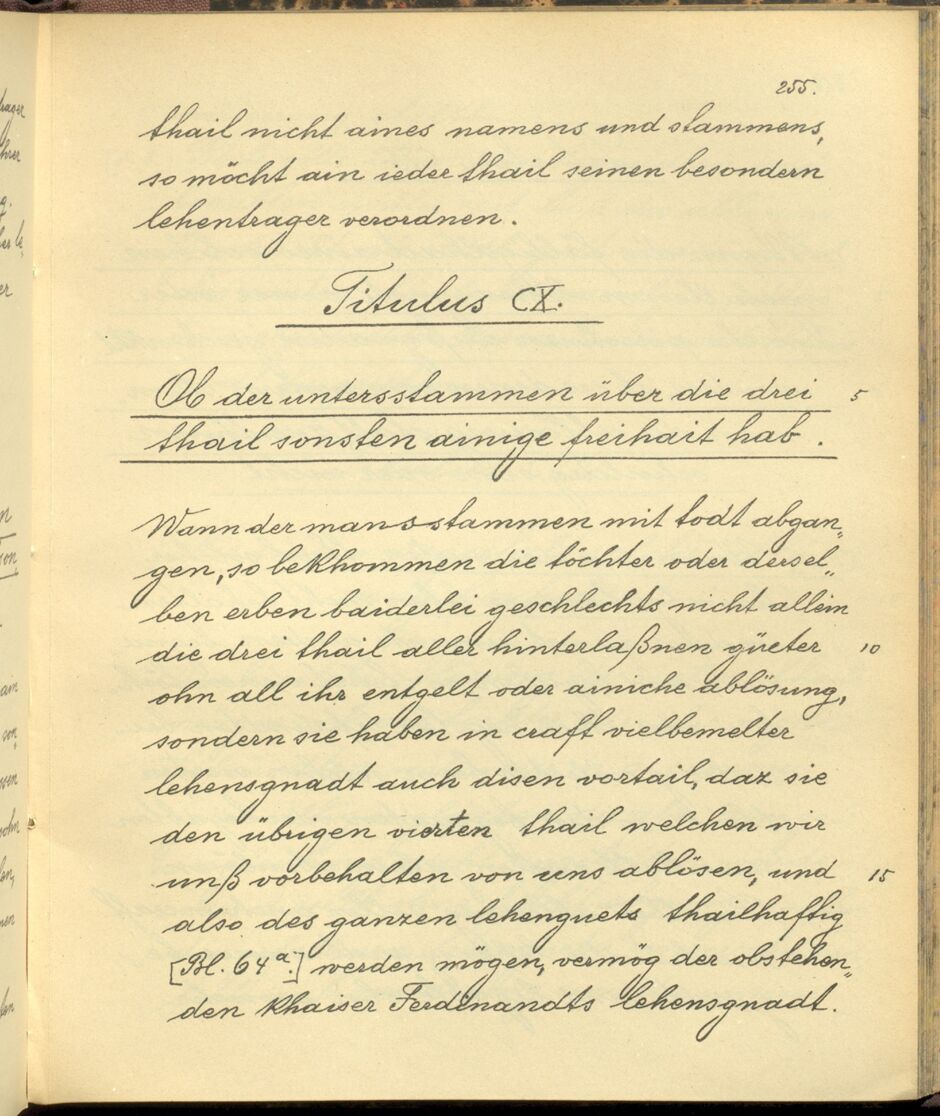 255.
thail nicht aines namens und stammens,
so möcht ain ieder thail seinen besondern
lehentrager verordnen.
Titulus CX.
Ob der untersstammen über die drei 5
thail sonsten ainige freihait hab.
Wann der mansstammen mit todt abgan„
gen, so bekhommen die töchter oder dersel„
ben erben baiderlei geschlechts nicht allein
die drei thail aller hinterlaßnen güeter 10
ohn all ihr entgelt oder ainiche ablösung,
sondern sie haben in craft vielbemelter
lehensgnadt auch disen vortail, daz sie
den übrigen vierten thail welchen wir
unß vorbehalten von uns ablösen, und 15
also des ganzen lehenguets thailhaftig
[Bl. 64a.] werden mögen, vermög der obstehen„
den Khaiser Ferdinandts lehensgnadt.